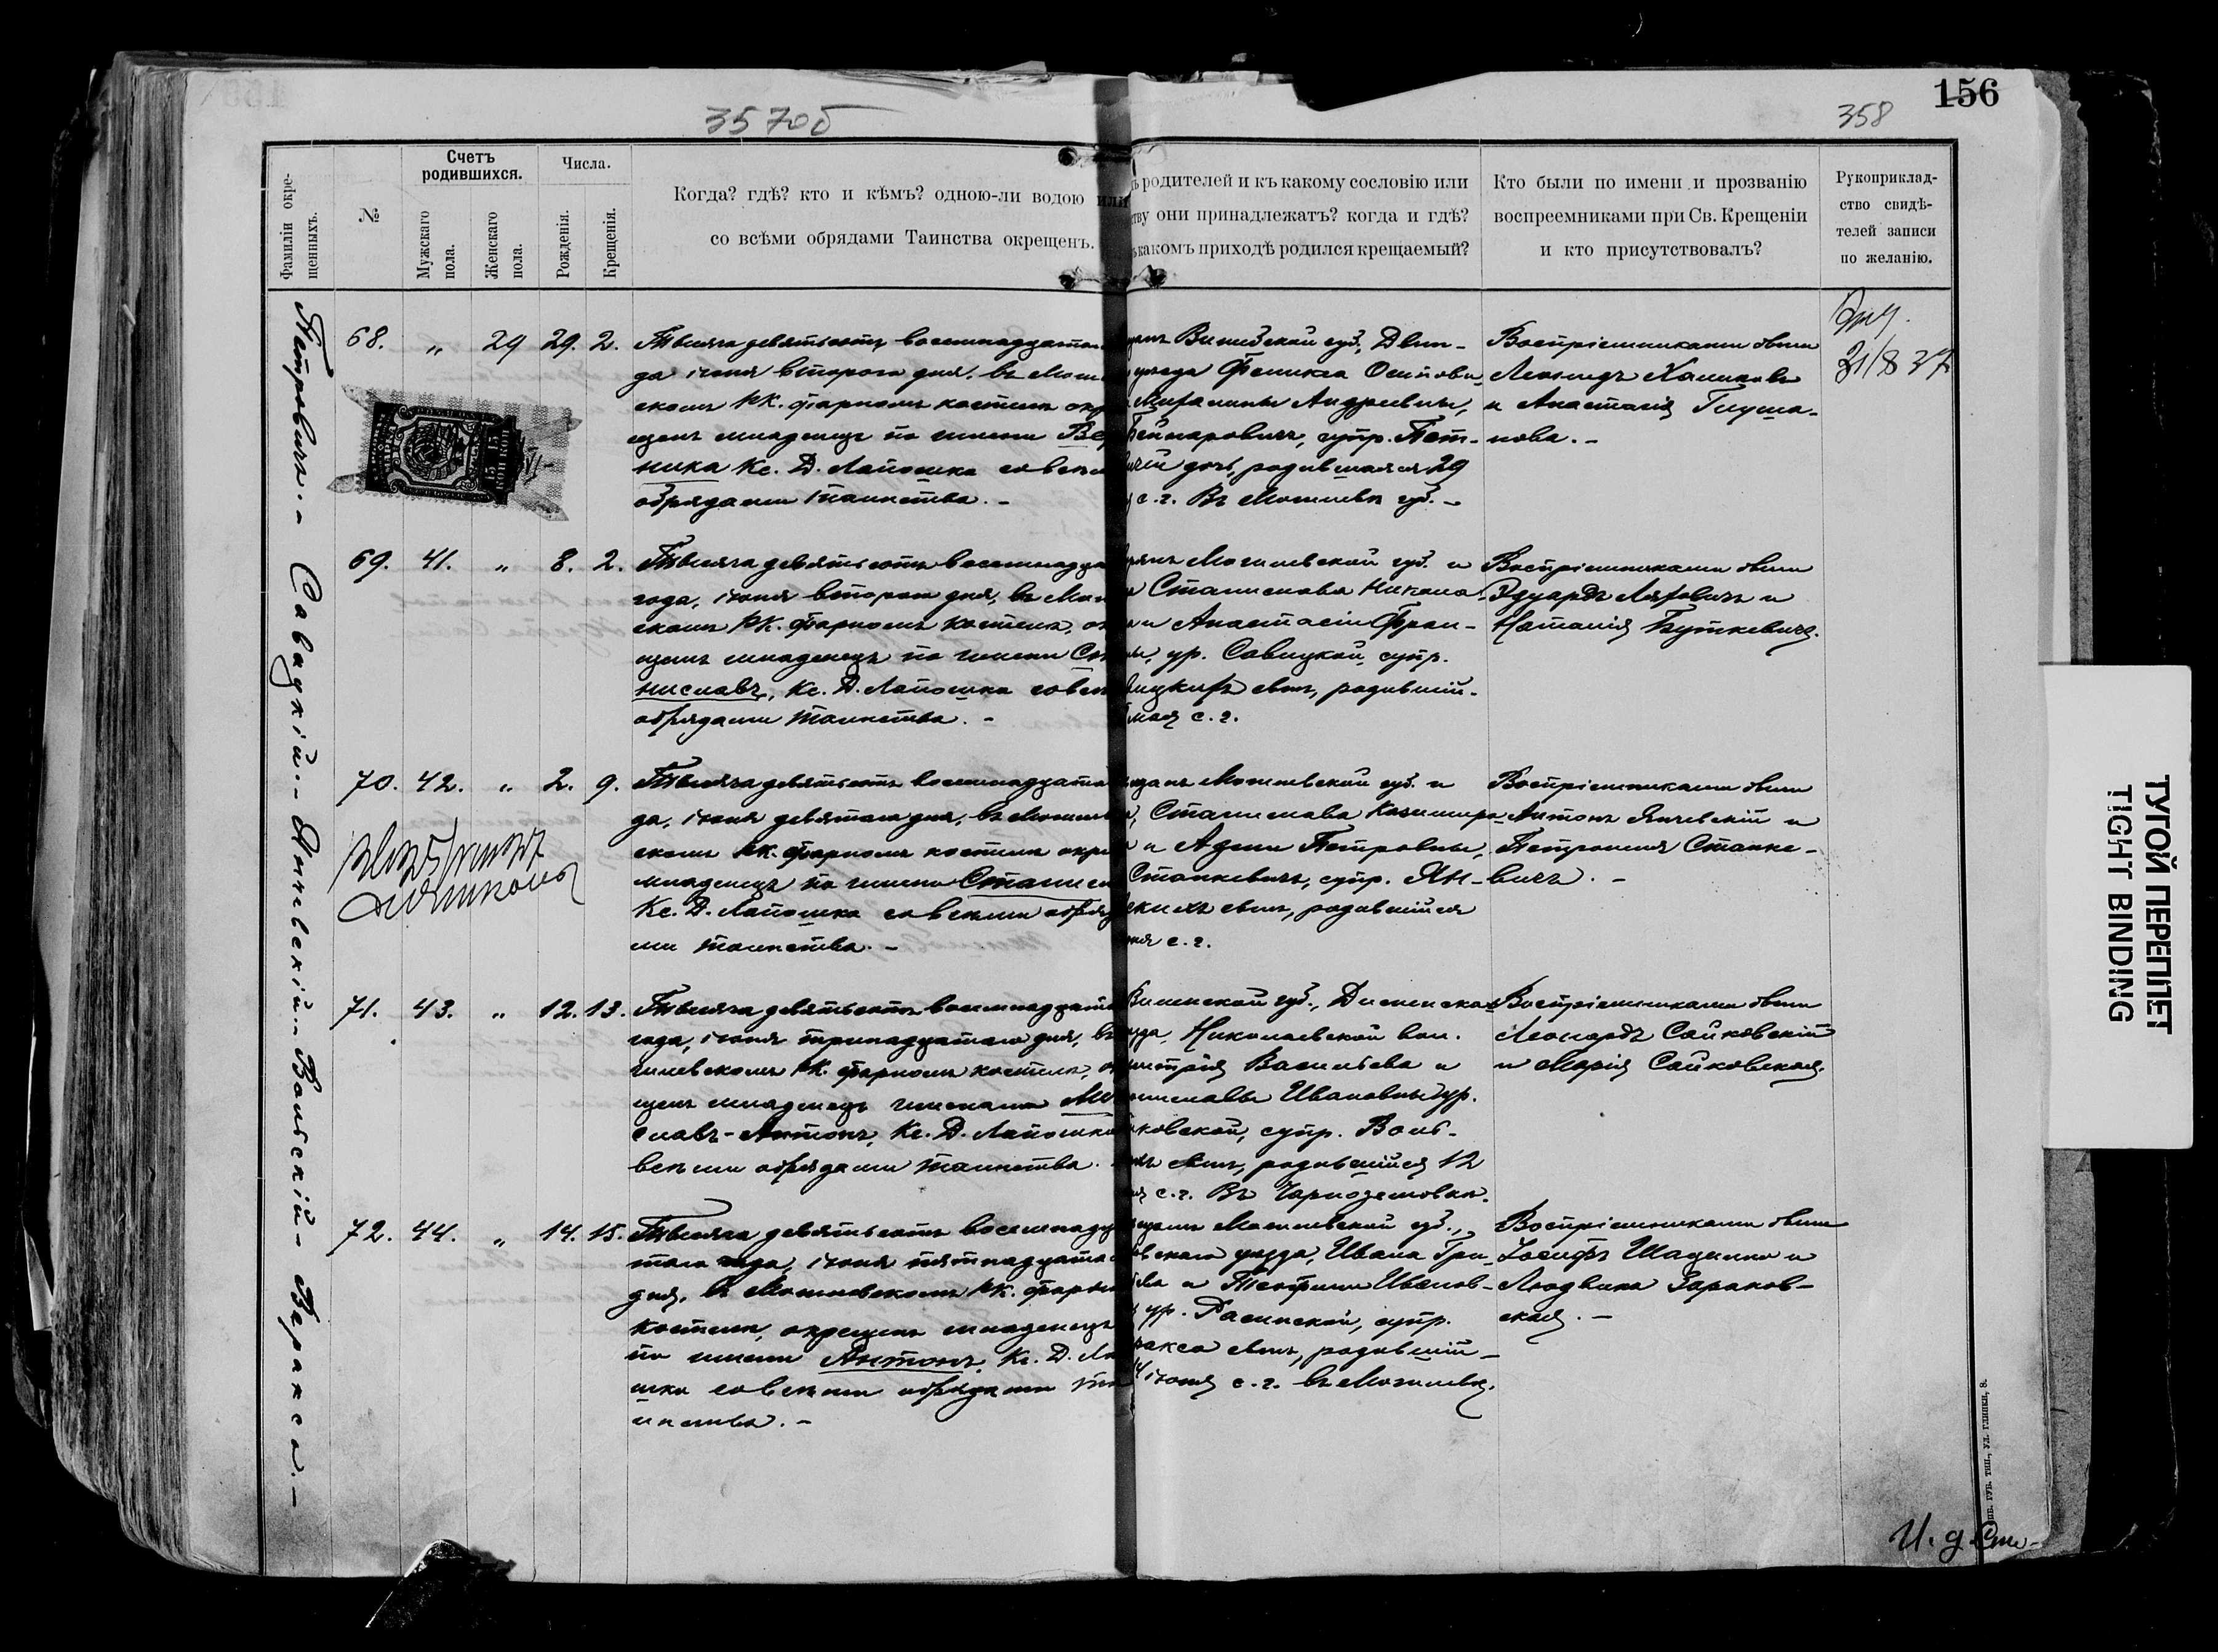 156
357об
358
Фамиліи окре-
щенныхъ.
№
Счетъ
родившихся.
Мужскаго
пола.
Женскаго
пола.
Числа.
Рожденія.
Крещенія.
Когда? гдѣ? кто и кѣмъ? одною-ли водою или
со всѣми обрядами Таинства окрещенъ.
родителей и къ какому сословію или
они принадлежатъ? когда и гдѣ?
какомъ приходѣ родился крещаемый?
Кто были по имени и прозванію
воспреемниками при Св. Крещеніи
и кто присутствовалъ?
Рукоприклад-
ство свидѣ-
телей записи
по желанію.
Петровичъ.-
68. " 29 29. 2.
Тысяча девятьсотъ восемнадцата
да іюня второго дня, въ Моги
скомъ РК. фарномъ костелѣ окр
щенъ младенецъ по имени Ве
ника Кс. Д. Лапошка со всѣми
обрядами таинства.-
Витебской губ., Двин-
уѣзда Феликса Осипови
Андреевны,
супр. Пет-
дочь, родившаяся 29
с.г. Въ Могилевѣ губ.-
Воспріемниками были
Леонидъ
и Анастасія
нова.-
21/8 37
Савицкій.-
69. 41. " 8. 2.
Тысяча девятьсотъ восемнадца
года, іюня второго дня, въ Мог
скомъ РК. фарномъ костелѣ, ок
щенъ младенецъ по имени Ст
ниславъ, Кс. Д. Лапошка со всѣ
обрядами таинства.-
Могилевской губ. и
Станислава Никола
и Анастасіи Фран-
ур. Савицкой, супр.
вицкихъ сынъ, родивший-
с.г.
Воспріемниками были
Эдуардъ Ляховичъ и
Наталія Буткевичъ.
70. 42. " 2. 9.
Тысяча девятьсотъ восемнадцата
да, іюня девятаго дня, въ Могилев
скомъ РК. фарномъ костелѣ окре
младенецъ по имени Станисл
Кс. Д. Лапошка со всѣми обряд
ми таинства.-
Могилевской губ. и
Станислава Казимира
и Адели Петровны,
Станкевичъ, супр. Ян-
скихъ сынъ, родившійся
с.г.
Воспріемниками были
Антонъ и
Петронеля Станке-
вичъ.-
Вольскій-
71. 43. " 12. 13.
Тысяча девятьсотъ восемнадцата
года, іюня тринадцатаго дня, въ
гилевскомъ РК. фарномъ костелѣ, ок
щенъ младенецъ именами
славъ-Антонъ, Кс. Д. Лапошка
всѣми обрядами таинства.
Виленской губ., Дисненска
Николаевской вол.
Васильева и
Ивановны ур.
ковской, супр. Воль-
сынъ, родившійся 12
с.г. Въ
Воспріемниками были
Леонардъ Сайковскій
и Марія Сайковская.
Веракса.-
72. 44. " 14. 15.
Тысяча девятьсотъ восемнадца
таго года, іюня пятнадцатаго
дня, въ Могилевскомъ РК. фарном
костелѣ, окрещенъ младенецъ
по имени Антонъ, Кс. Д. Ла
шка со всѣми обрядами та
инства.-
Могилевской губ.,
уѣзда, Ивана Гри
и Теофили Иванов-
ур. Расинской, супр.
ракса сынъ, родивший-
14 іюня с.г. въ Могилевѣ.
Воспріемниками были
Іосифъ и
Людвика Зараков-
ская.-
ГУБ. ТИП., УЛ. ГЛИНКИ, 8.
И. д.
ТУГОЙ ПЕРЕПЛЕТ
TIGHT BINDING